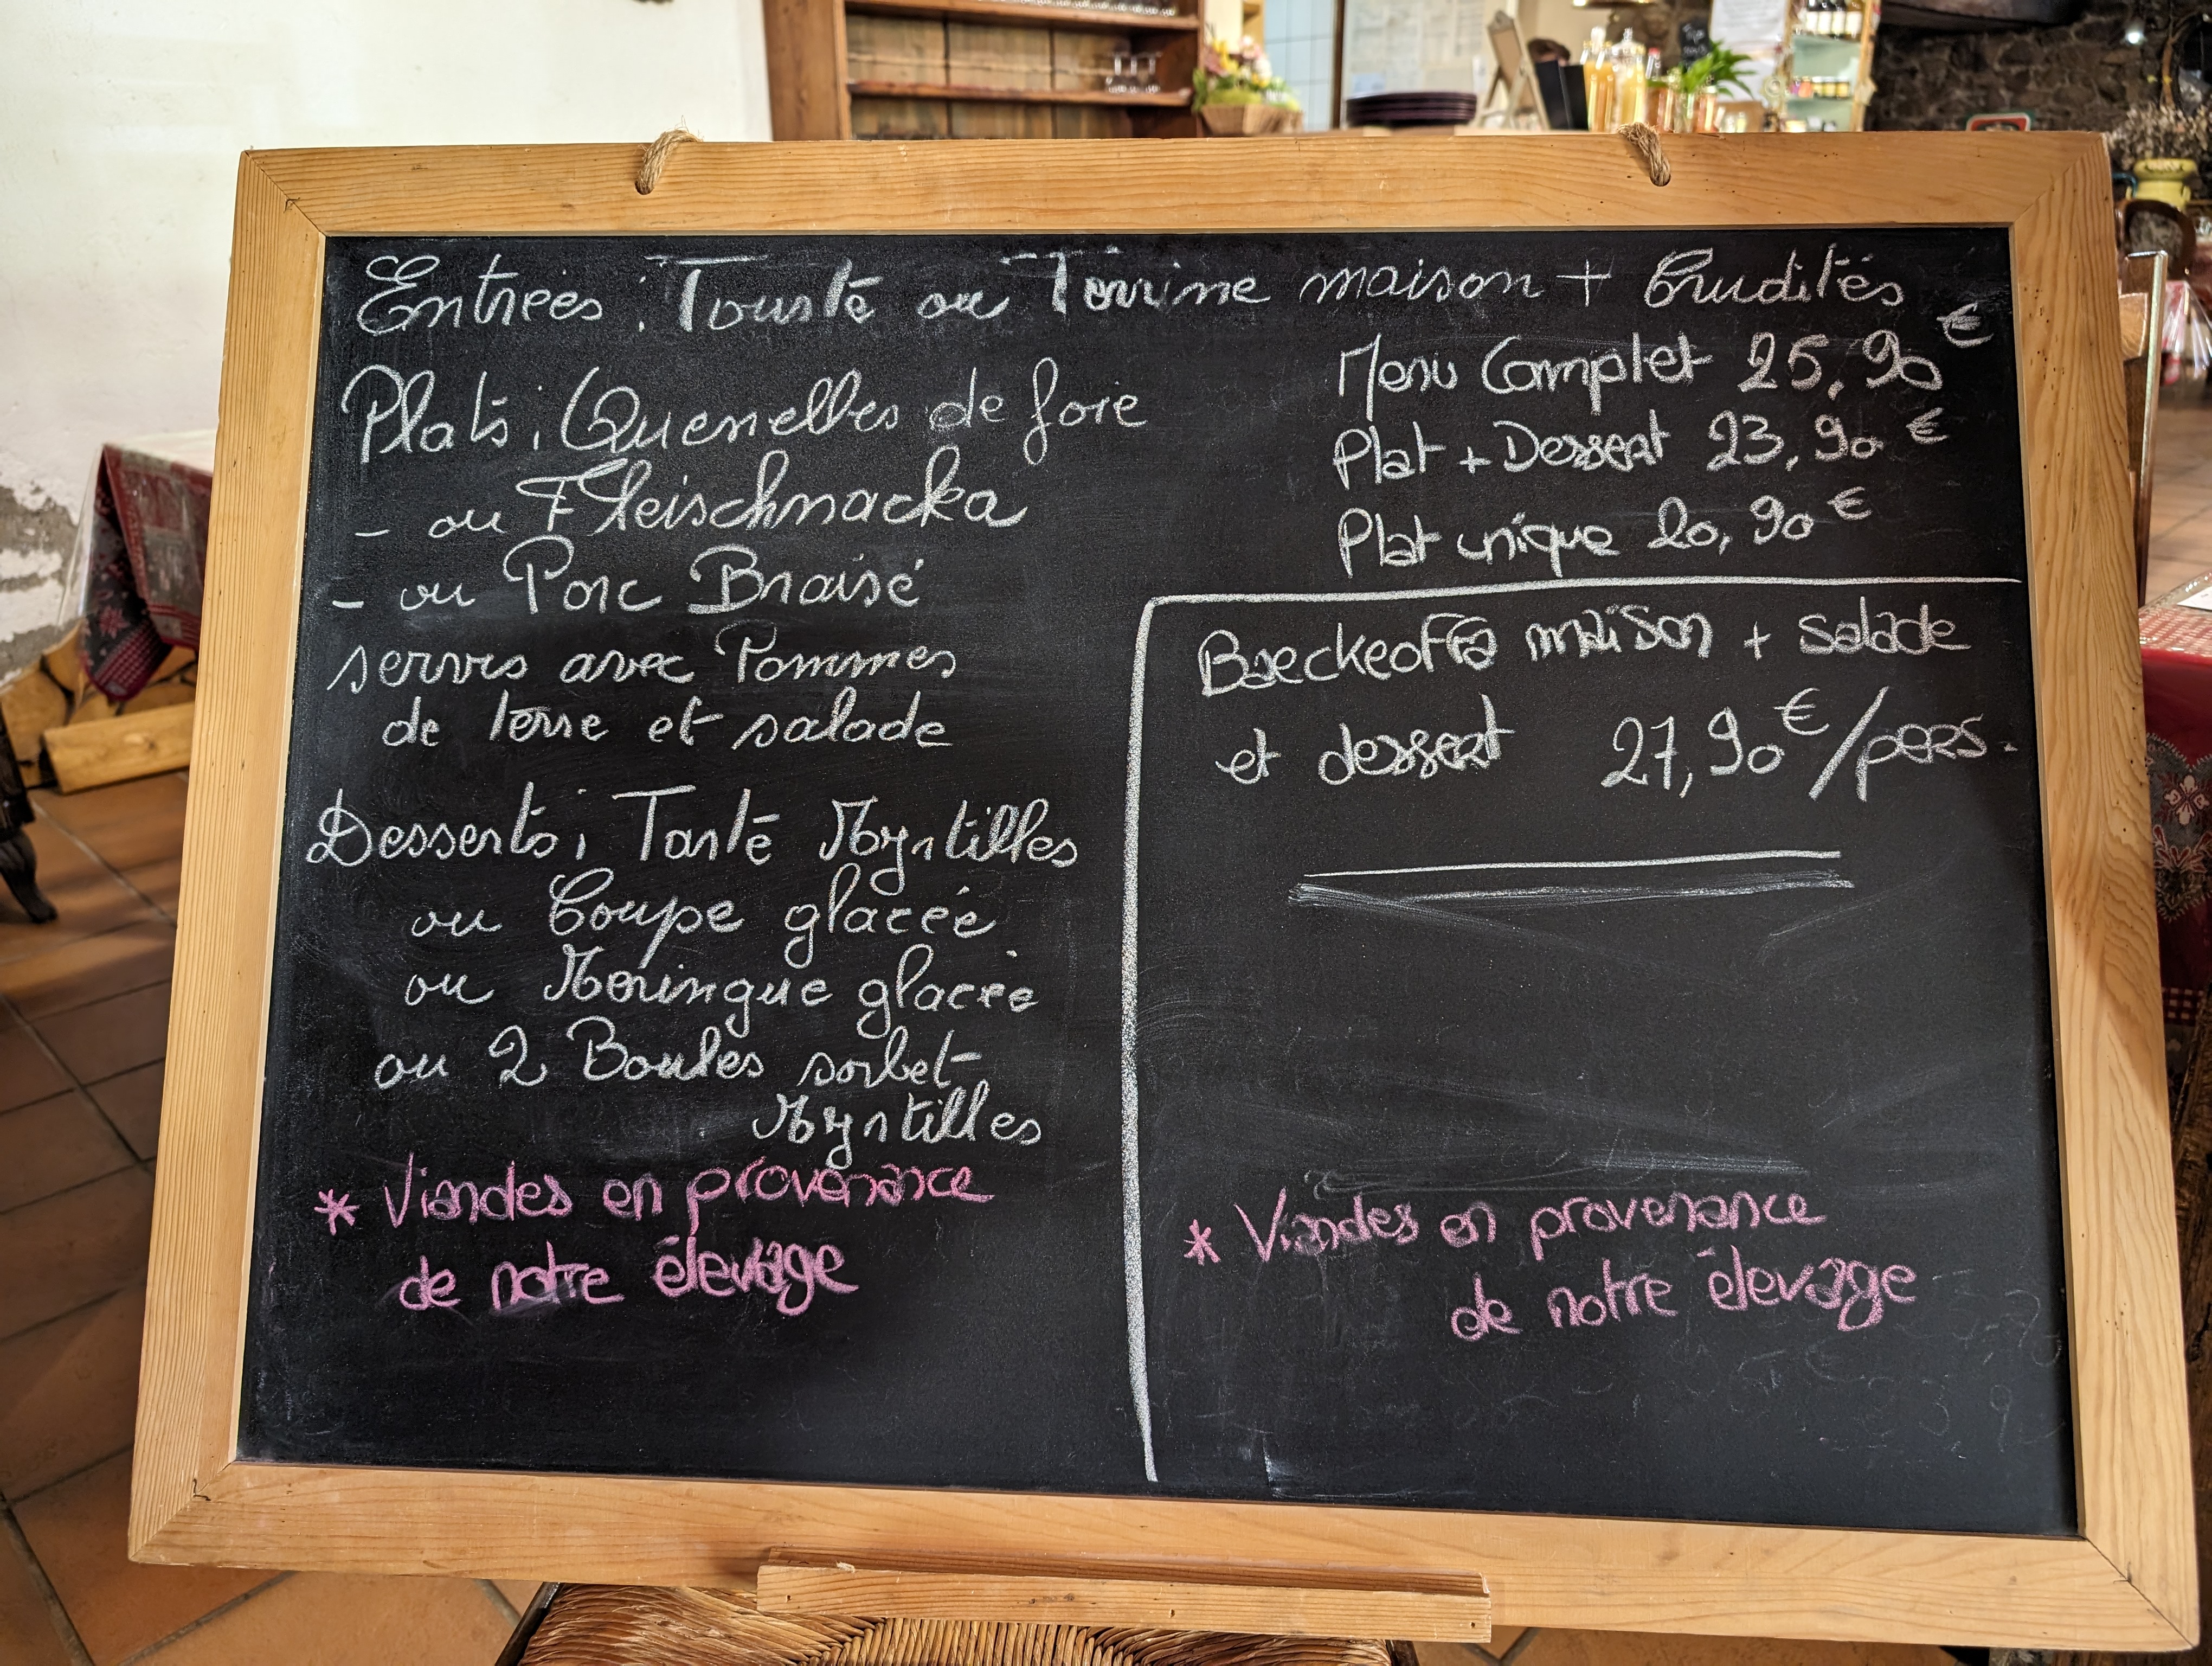 Entrées : Tourte ou Terrine maison + Crudités
Plats : Quenelles de foie
- ou Fleischnacka
- ou Porc Braisé
servis avec Pommes
de terre et salade
Desserts : Tarte Myrtilles
ou Coupe glacée
ou Meringue glacée
ou 2 Boules sorbet
Myrtilles
* Viandes en provenance
de notre élevage
Menu Complet 25,90 €
Plat + Dessert 23,90 €
Plat unique 20,90 €
Baeckeoffa maison + salade
et dessert 27,90 €/pers.
* Viandes en provenance
de notre élevage